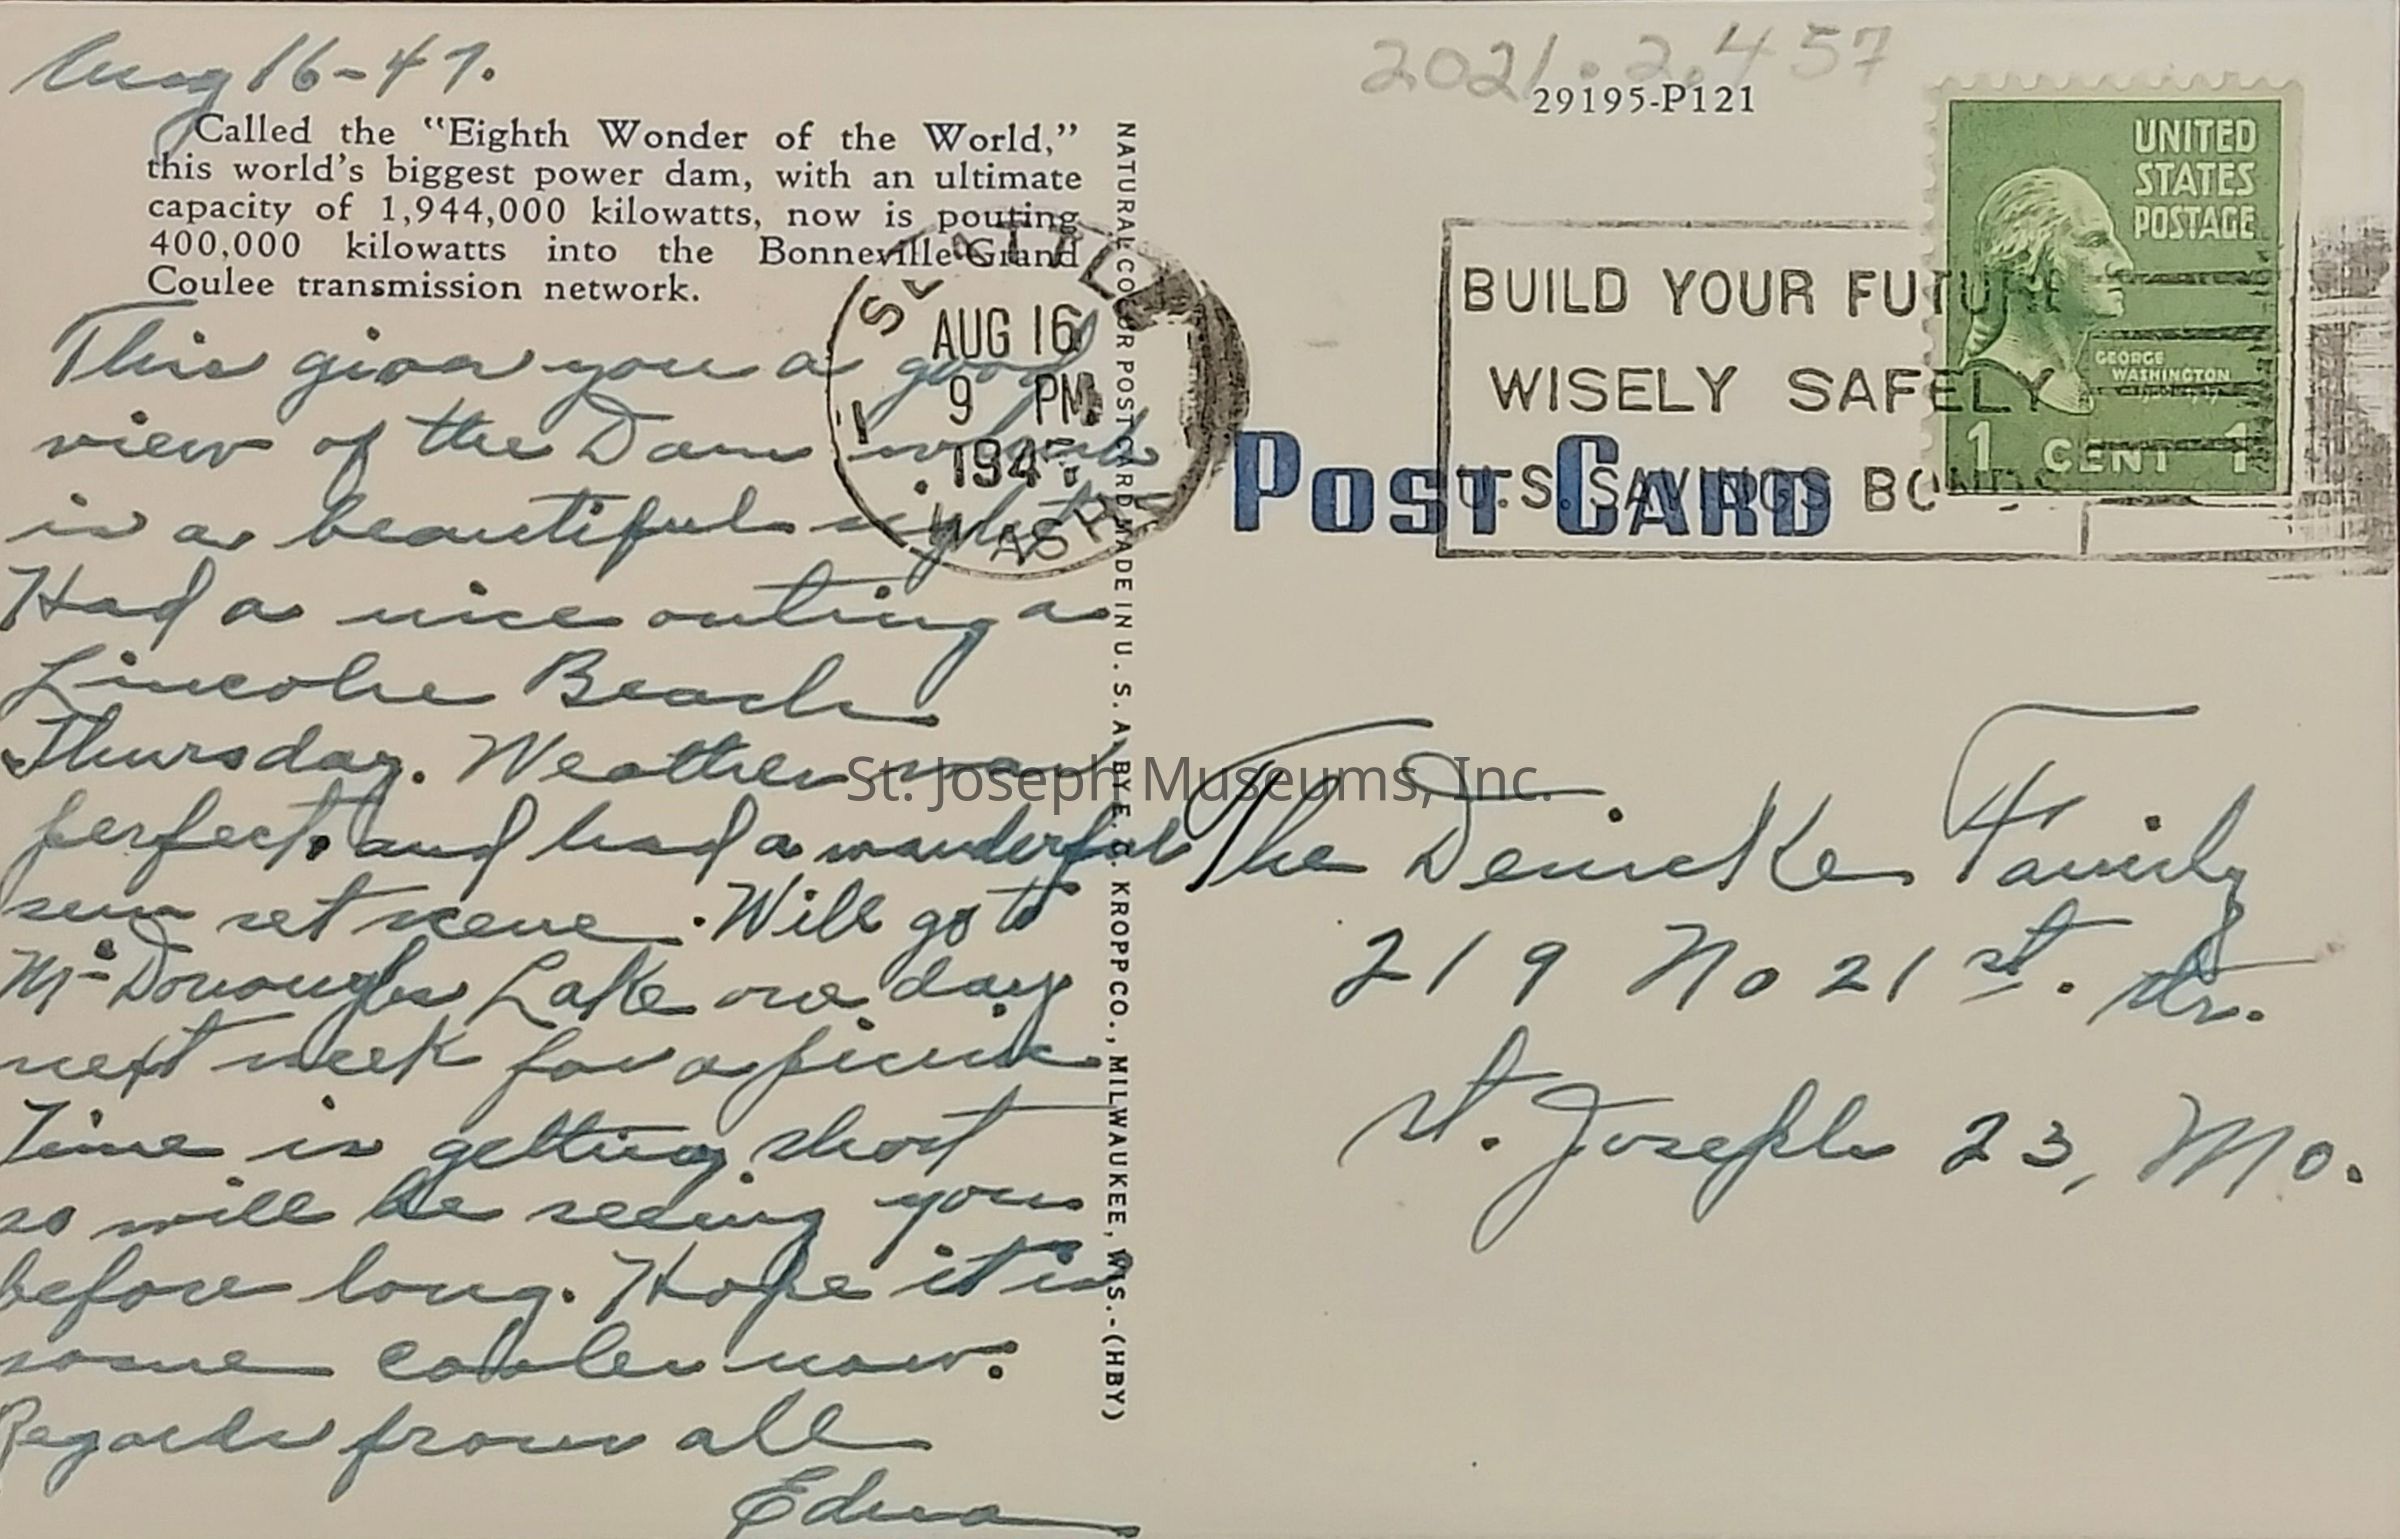 Aug 16-47.
2021.2.457
29195-P121
Called the "Eighth Wonder of the World,"
this world's biggest power dam, with an ultimate
capacity of 1,944,000 kilowatts, now is pouring
400,000 kilowatts into the Bonneville-Grand
Coulee transmission network.
This gives you a good
view of the Dam which
is a beautiful sight
Had a nice outing a
Lincoln Beach
Thursday. Weather was
perfect. and had a wonderful
sun set scene. Will go to
McDonoughs Lake one day
next week for a picnic
Time is getting short
so will be seeing you
before long. Hope it is
some cooler now.
Regards from all
Edna
NATURAL COLOR POST CARD MADE IN U. S. A. BY E. C. KROPP CO., MILWAUKEE, WIS.-(HBY)
SEATTLE
AUG 16
9 PM
194
WASH
1
BUILD YOUR FUTURE
WISELY SAFELY
U.S. SAVINGS BONDS
POST CARD
UNITED
STATES
POSTAGE
GEORGE
WASHINGTON
1 CENT 1
St. Joseph Museums, Inc.
The Denicke Family
219 No 21st. Str.
St. Joseph 23, Mo.